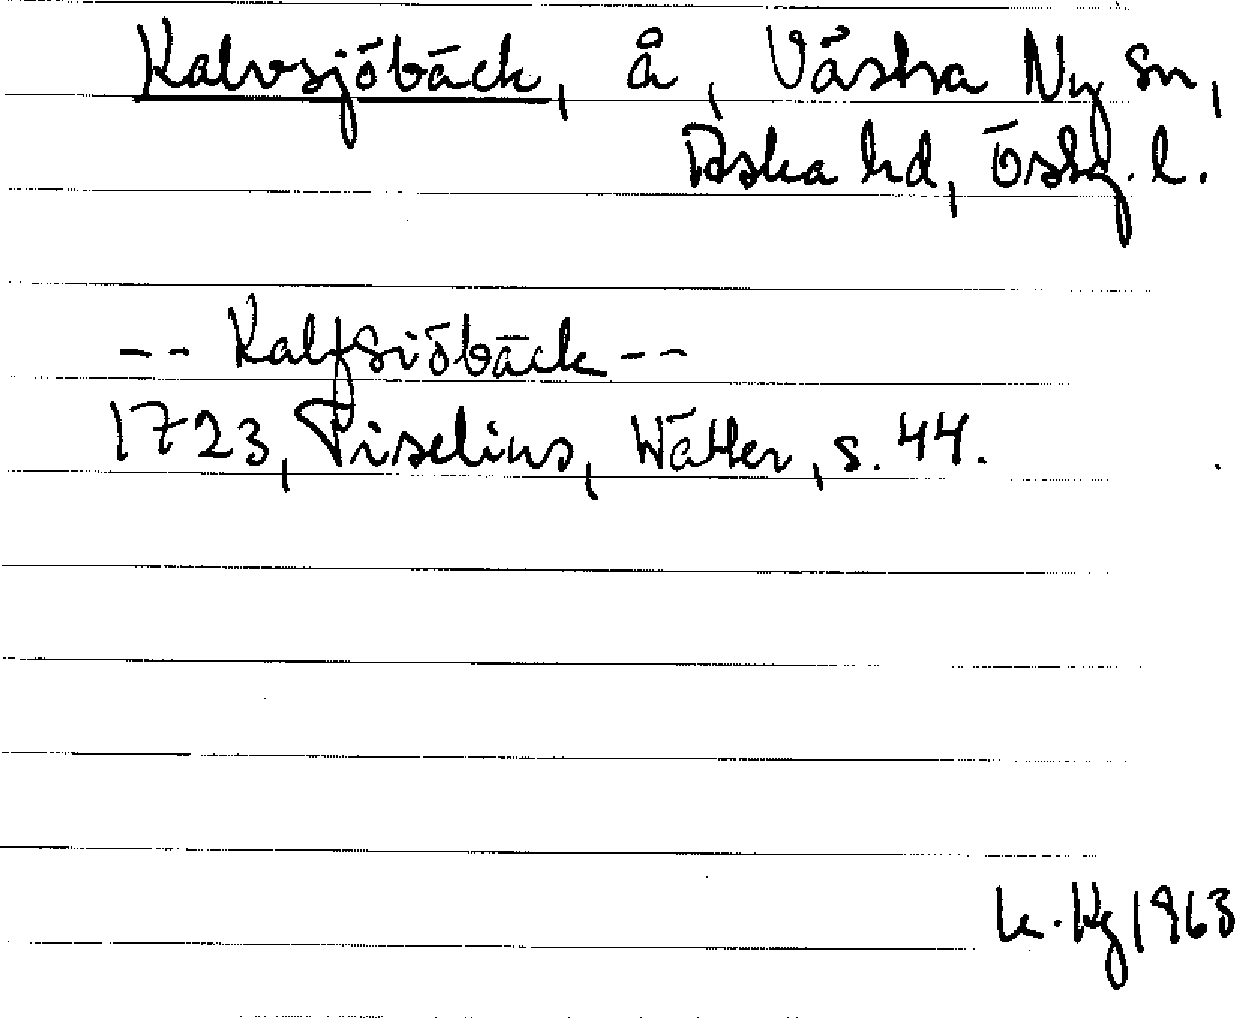 Kalvsjöbäck, å, Västra Ny sn,
Aska hd, Östg. l.
-- Kalfsiöbäck --
1723, Tiselius, Wätter, s. 44.
K. Hg 1963